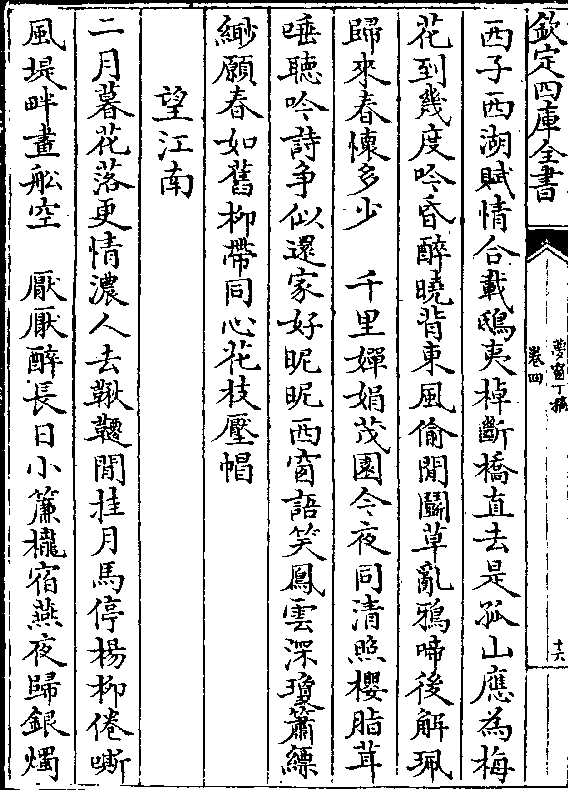 欽定四庫全書
夢窗丁稿
卷四
十六
西子西湖賦情合載鴟夷棹斷橋直去是孤山應為梅
花到幾度吟昏醉曉背東風偷閒鬭草亂鴉啼後解珮
歸來春懷多少　千里嬋娟茂園今夜同清照櫻脂茸
唾聽吟詩爭似還家好昵昵西窗語笑鳳雲深瓊簫縹
緲願春如舊柳帶同心花枝壓帽
望江南
二月暮花落更情濃人去鞦韆閒挂月馬停楊柳倦嘶
風堤畔畫船空　厭厭醉長日小簾櫳宿燕夜歸銀燭